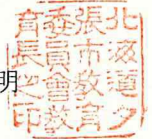 明
北海道夕
張市教育
委員會教
育長之印